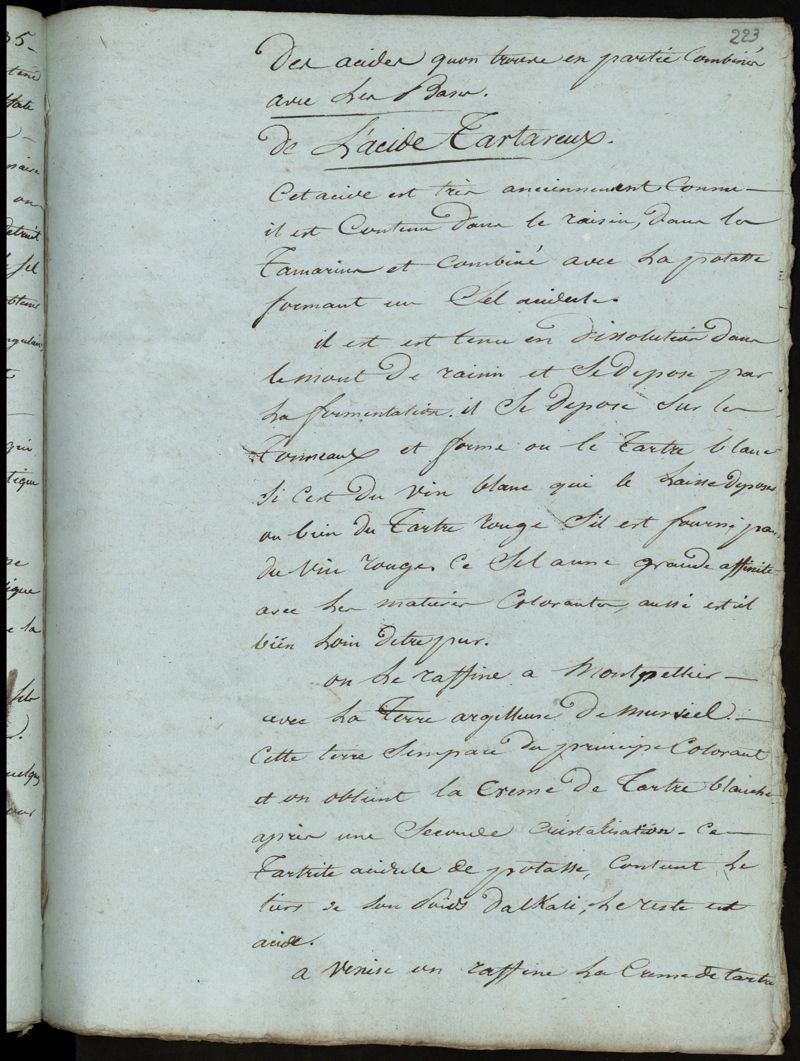 223
Des acides qu'on trouve en partie Combinés
avec Les Bases.
de L'acide Tartareux.
Cet acide est très anciennement Connu —
il est Contenu dans le raisin, dans les
Tamarins et combiné avec La potasse
formant un Sel acidule.
il est est tenu en dissolution dans
le mout de raisin et Se depose par
La fermentation. il Se depose Sur les
Tonneaux et forme ou le Tartre blanc
Si c'est du vin blanc qui le Laisse deposer
ou bien du Tartre rouge S'il est fourni par
du vin rouge. Ce Sel a une grande affinité
avec Les matieres Colorantes, aussi est il
bien Loin detre pur.
on Le raffine a Montpellier —
avec La Terre argilleuse de Murviel. —
Cette terre Sempare du principe Colorant
et on obtient la Creme de Tartre blanche
après une Seconde Cristalisation — Ce —
Tartrite acidule de potasse, Contient Le
tiers de Son Poids dalKali, Le reste est
acide.
a Venise on raffine La Creme de tartre